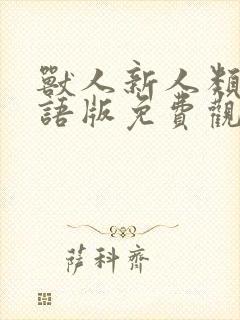 獸人新人類
語版免費觀
萨科齊